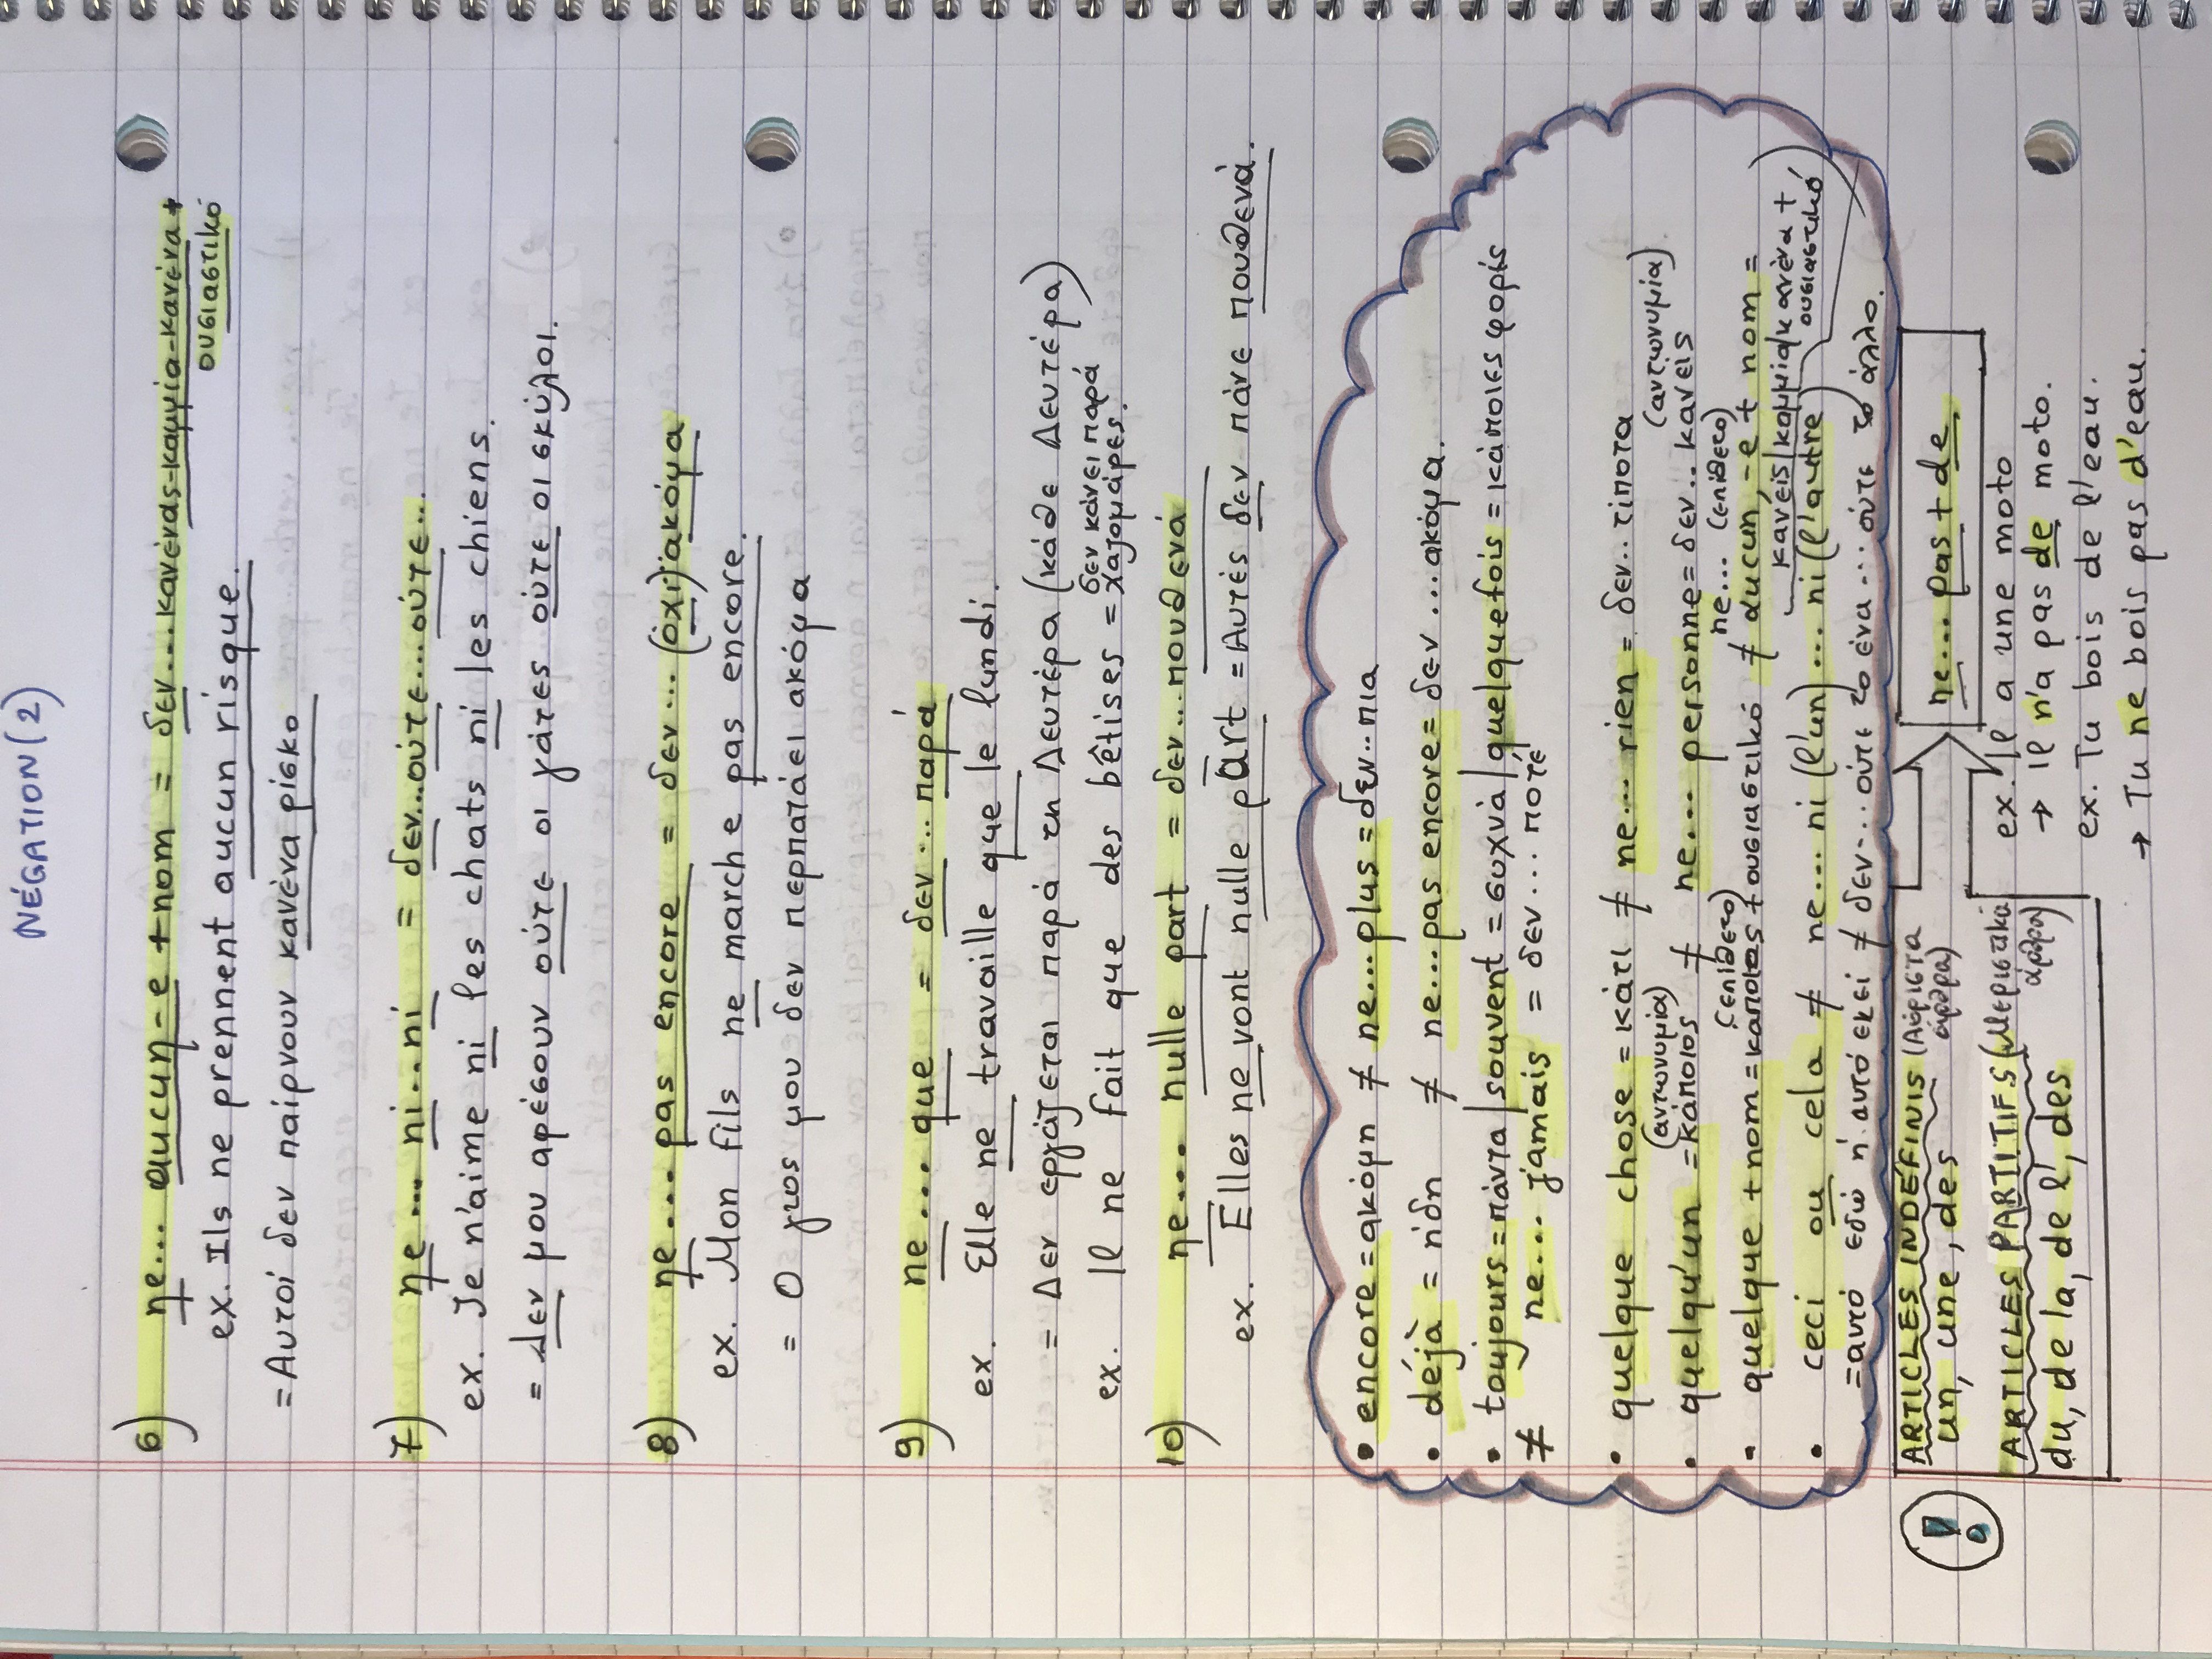 NÉGATION (2)
6) ne... aucun-e + nom = δεν... κανένας-καμμία-κανένα +
ουσιαστικό
ex. Ils ne prennent aucun risque.
= Αυτοί δεν παίρνουν κανένα ρίσκο
7) ne... ni... ni = δεν... ούτε... ούτε...
ex. Je n'aime ni les chats ni les chiens.
= Δεν μου αρέσουν ούτε οι γάτες ούτε οι σκύλοι.
8) ne... pas encore = δεν... (όχι) ακόμα
ex. Mon fils ne marche pas encore.
= Ο γιος μου δεν περπατάει ακόμα
9) ne... que = δεν... παρά
ex. Elle ne travaille que le lundi.
= Δεν εργάζεται παρά τη Δευτέρα (κάθε Δευτέρα)
ex. Il ne fait que des bêtises = δεν κάνει παρά
χαζομάρες.
10) ne... nulle part = δεν... πουθενά
ex. Elles ne vont nulle part = Αυτές δεν πάνε πουθενά.
• encore = ακόμη ≠ ne... plus = δεν... πια
• déjà = ήδη ≠ ne... pas encore = δεν ... ακόμα.
• toujours = πάντα / souvent = συχνά / quelquefois = κάποιες φορές
≠ ne... jamais = δεν... ποτέ
• quelque chose = κάτι ≠ ne... rien = δεν... τίποτα
(αντωνυμία) (αντωνυμία)
• quelqu'un = κάποιος ≠ ne... personne = δεν... κανείς
(επίθετο) ne... (επίθετο)
• quelque + nom = κάποιος + ουσιαστικό ≠ aucun, -e + nom =
κανείς/καμμία/κανένα +
ουσιαστικό
• ceci ou cela ≠ ne... ni (l'un)... ni (l'autre)
= αυτό εδώ ή αυτό εκεί ≠ δεν... ούτε το ένα... ούτε το άλλο.
! ARTICLES INDÉFINIS (Αόριστα
άρθρα)
un, une, des
ARTICLES PARTITIFS (Μεριστικά
άρθρα)
du, de la, de l', des
ne... pas + de
ex. Il a une moto
→ Il n'a pas de moto.
ex. Tu bois de l'eau.
→ Tu ne bois pas d'eau.